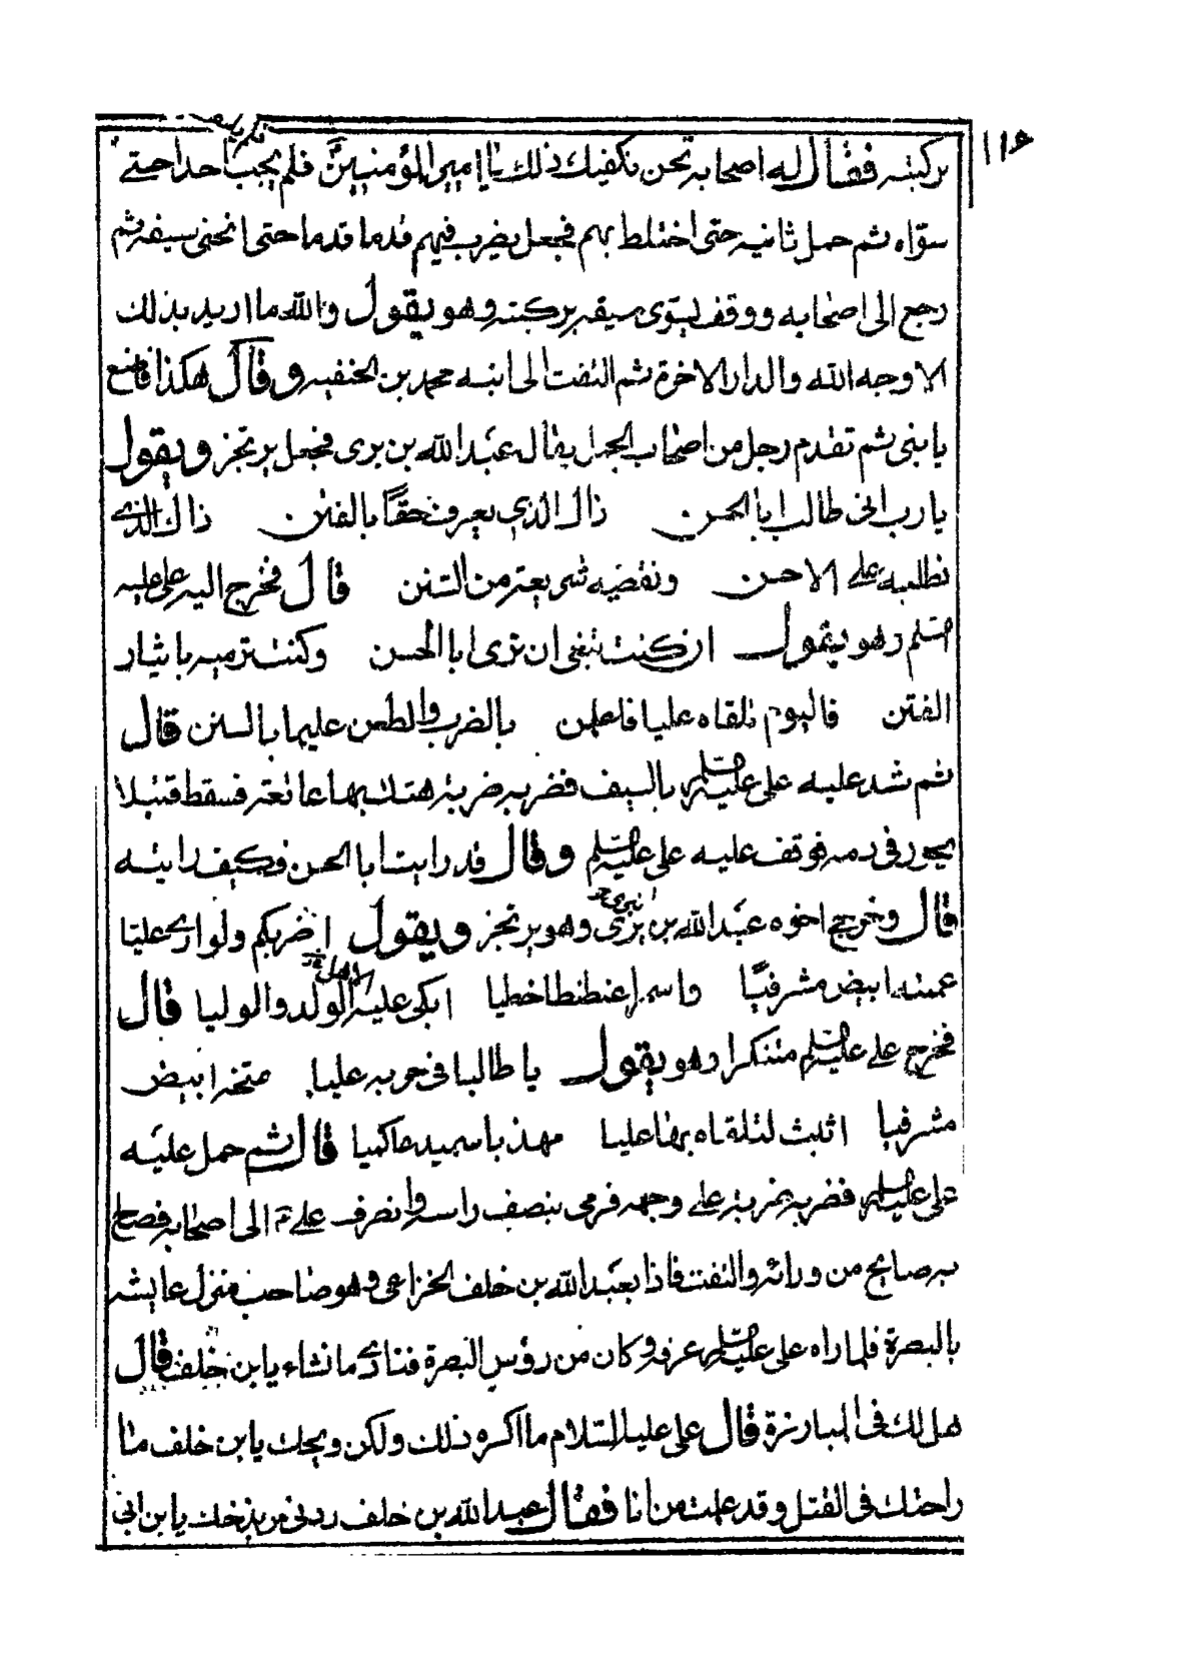 ١١٥
بركبته فقال له اصحابه نحن نكفيك ذلك يا امير المؤمنين فلم يجب احدا حتى
سوّاه ثم حمل ثانيه حتى اختلط بهم فجعل يضرب فيهم قدما قدما حتى انحنى سيفه ثم
رجع الى اصحابه ووقف ليسوى سيفه بركبته وهو يقول والله ما اريد بذلك
الا وجه الله والدار الاخرة ثم التفت الى ابنه محمد بن الحنفيه وقال هكذا فاصنع
يا بنى ثم تقدم رجل من اصحاب الجمل يقال له عبد الله بن برى فجعل يرتجز ويقول
يا رب انى طالب ابا الحسن ذاك الذى يعرف حقًا بالفتن ذاك الذى
نطلبه على الاحن ونقضيه شريعته من السنن قال فخرج اليه على عليه
السلم وهو يقول ان كنت تبغى ان ترى ابا الحسن وكنت ترميه بايثار
الفتن فاليوم تلقاه عليا فاعلمن بالضرب والطعن عليما بالسنن قال
ثم شد عليه على عليه السلم بالسيف فضربه ضربة هتك بها عاتقه فسقط قتيلا
يخور فى دمه فوقف عليه على عليه السلم وقال قد رايت ابا الحسن فكيف رايته
قال وخرج اخوه عبد الله بن بزى وهو يرتجز ويقول اضربكم ولو ارى عليّا
عممته ابيض مشرفيًا واسمرا عنطنطا خطيا ابكى عليه الولد والوليا قال
فخرج على عليه السلم متنكرا وهو يقول يا طالبا فى حربه عليا يمنحه ابيض
مشرفيا اثبت لتلقاه بها عليا مهذبا سميدعا كميا قال ثم حمل عليه
على عليه السلم فضربه ضربة على وجهه فرمى بنصف راسه وانصرف على ع الى اصحابه فصاح
به صايح من ورائه والتفت فاذا بعبد الله بن خلف الخزاعى وهو صاحب منزل عايشه
بالبصرة فلما راه على عليه السلم عرفه وكان من رؤس البصرة فنادى ما تشاء يا بن خلف قال
هل لك فى المبارزة قال على عليه السلام ما اكره ذلك ولكن ويحك يا بن خلف ما
راحتك فى القتل وقد علمت من انا فقال عبد الله بن خلف ردنى من بذخك يا بن ابى